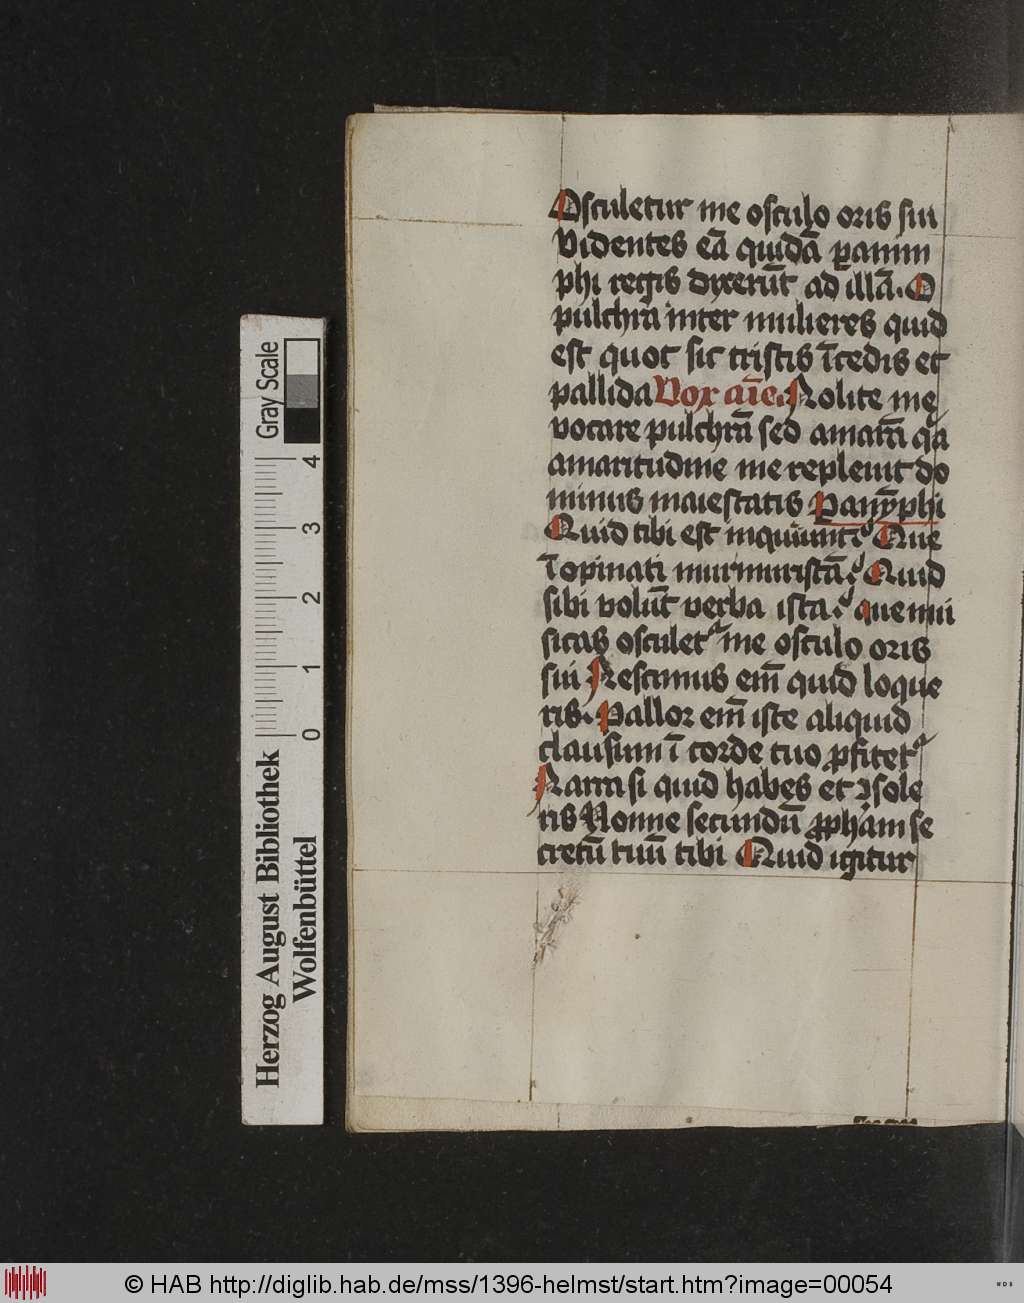 Osculetur me osculo oris sui
videntes eā quidā ꝑanim
phi regis dixerūt ad illā. O
pulchra inter mulieres quid
est quot sic tristis īcedis et
pallida Vox aīe. Nolite me
vocare pulchrā sed amarā qͣ
amaritudine me repleuit do
minus maiestatis Paranīphi
Quid tibi est inquiunt? Que
īopinati murmuris tā? Quid
sibi volūt verba ista? que mu
sitas osculetᷣ me osculo oris
sui Nescimus em̄ quid loque
ris. Pallor em̄ iste aliquid
clausum ī corde tuo ꝓfitetᷣ
Narra si quid habes et ꝯsole
ris Nonne secundū ꝓpham se
cretū tuū tibi Quid igitur
Herzog August Bibliothek
Wolfenbüttel
0 1 2 3 4
Gray Scale
© HAB http://diglib.hab.de/mss/1396-helmst/start.htm?image=00054
WDB